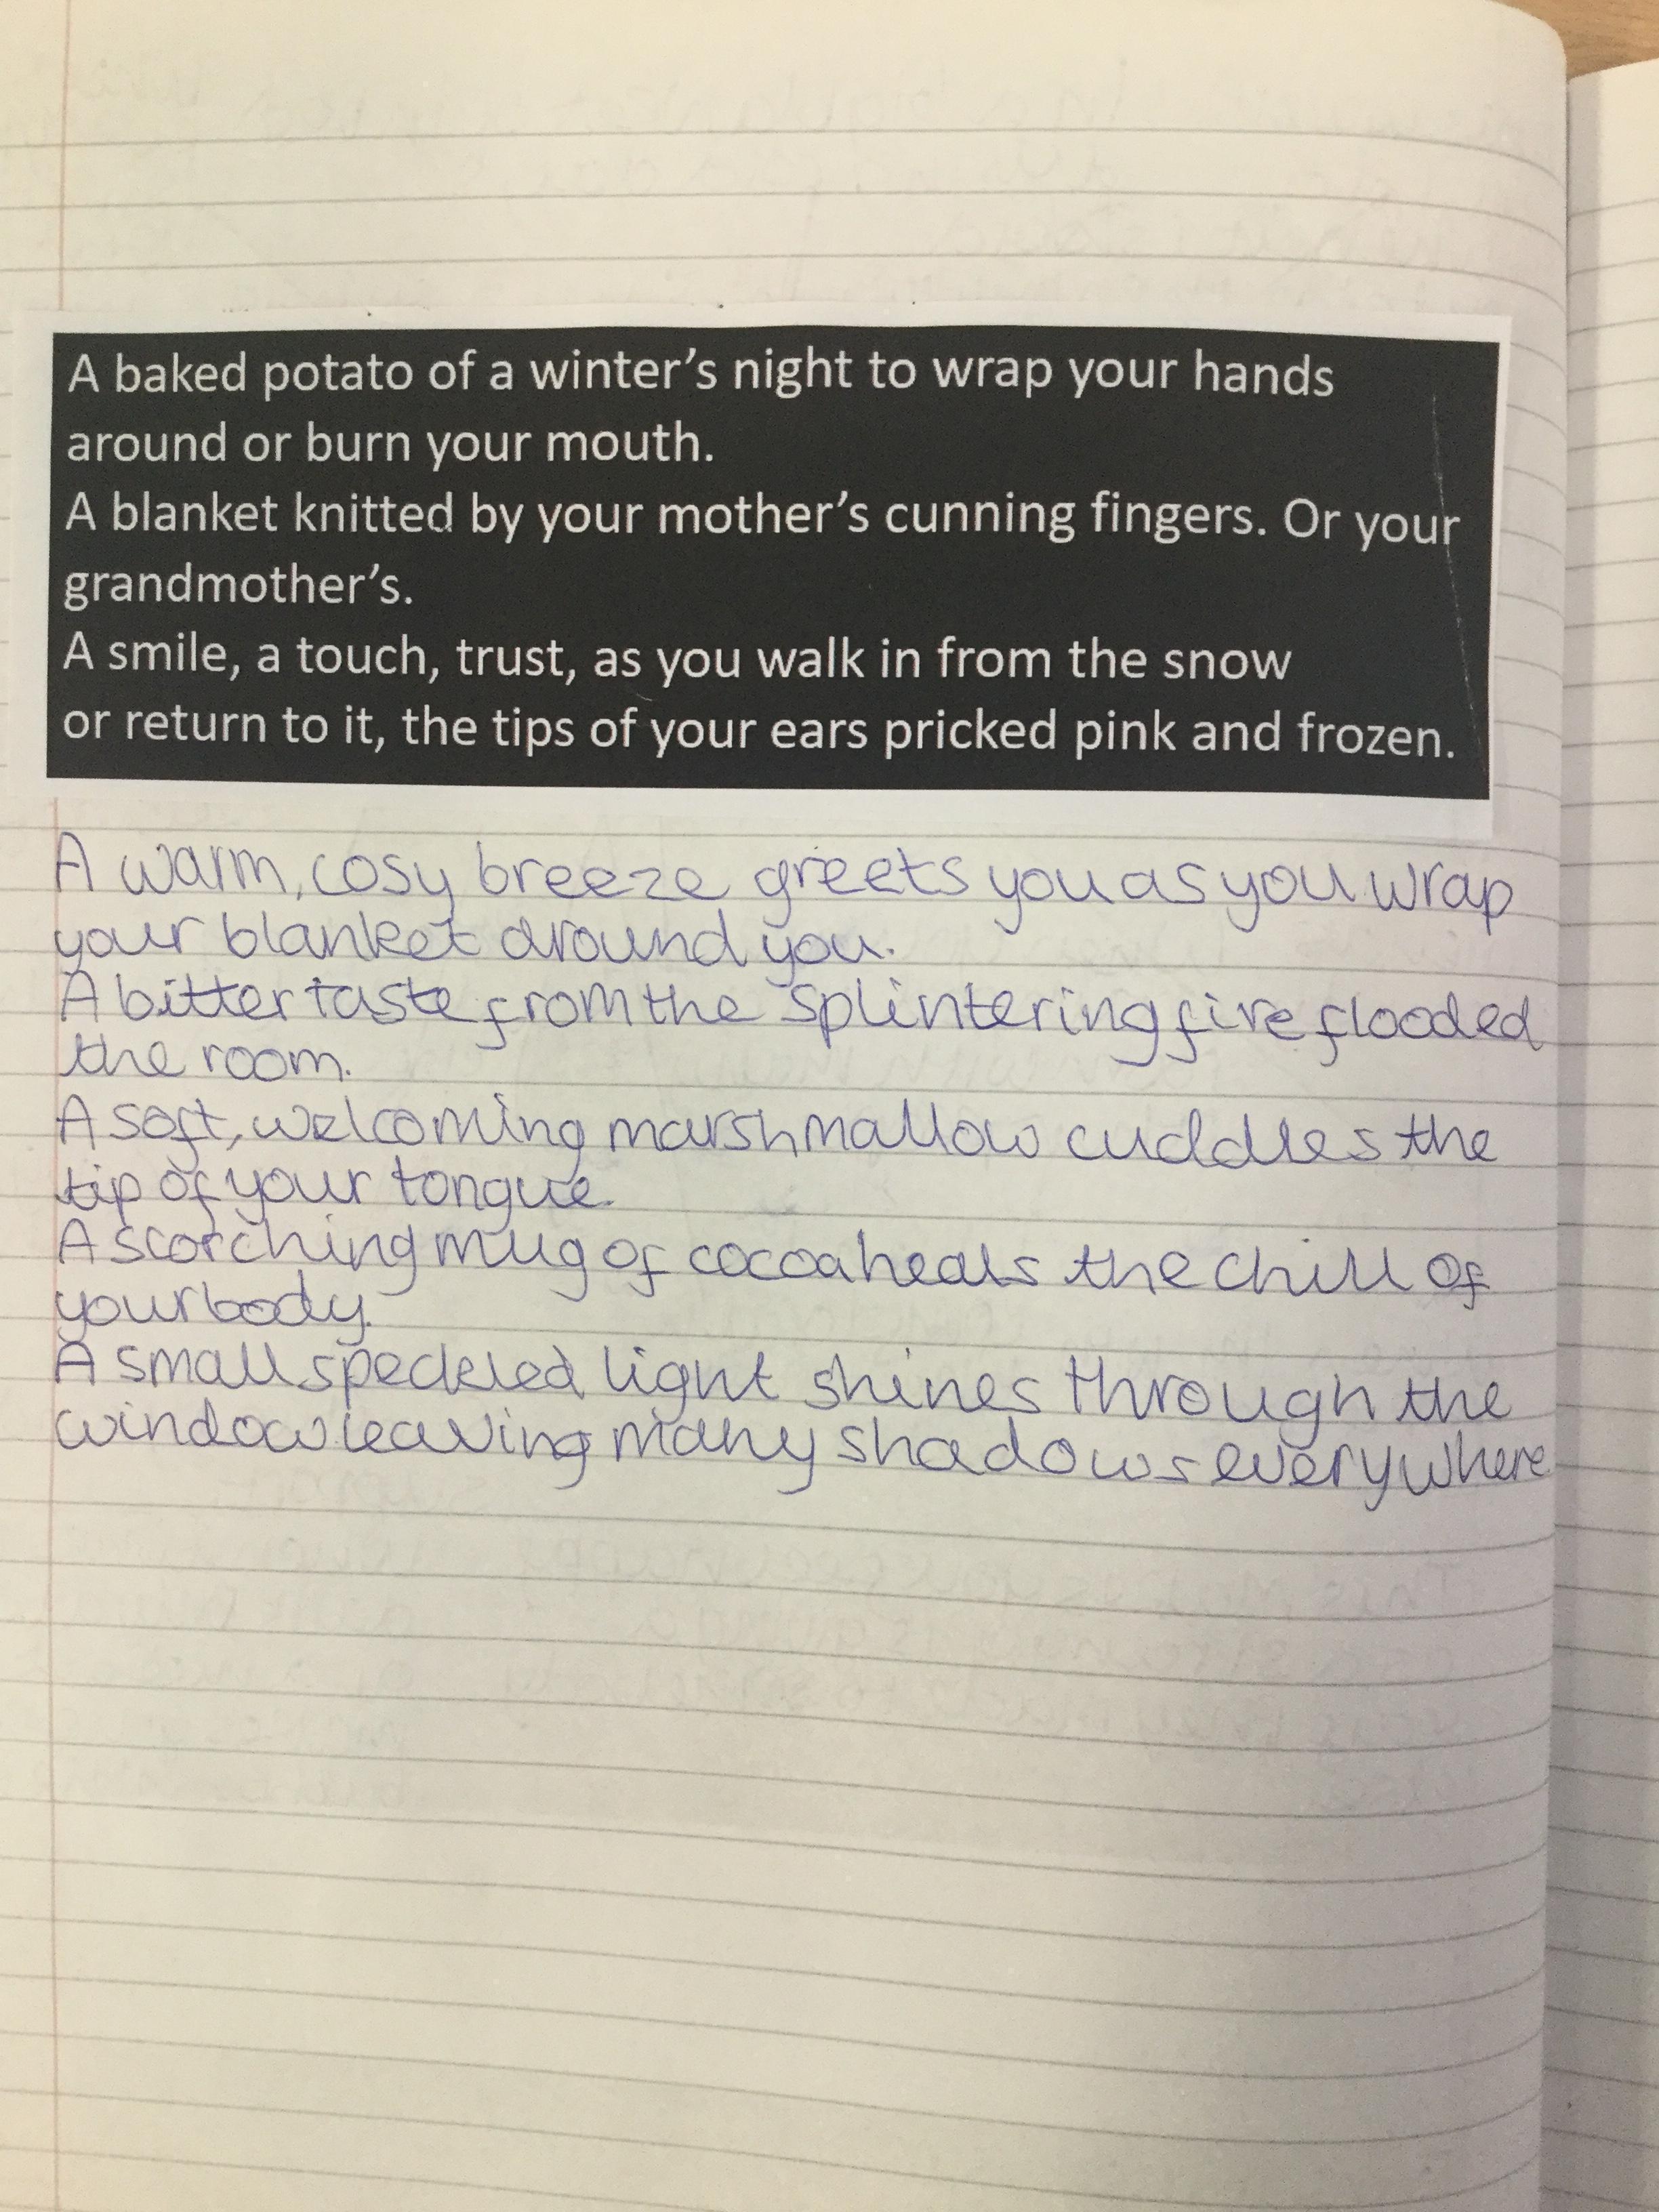 A baked potato of a winter's night to wrap your hands
around or burn your mouth.
A blanket knitted by your mother's cunning fingers. Or your
grandmother's.
A smile, a touch, trust, as you walk in from the snow
or return to it, the tips of your ears pricked pink and frozen.
A warm, cosy breeze greets you as you wrap
your blanket around you.
A bitter taste from the splintering fire flooded
the room.
A soft, welcoming marshmallow cuddles the
tip of your tongue.
A scorching mug of cocoa heals the chill of
your body.
A small speckled light shines through the
window leaving many shadows everywhere.